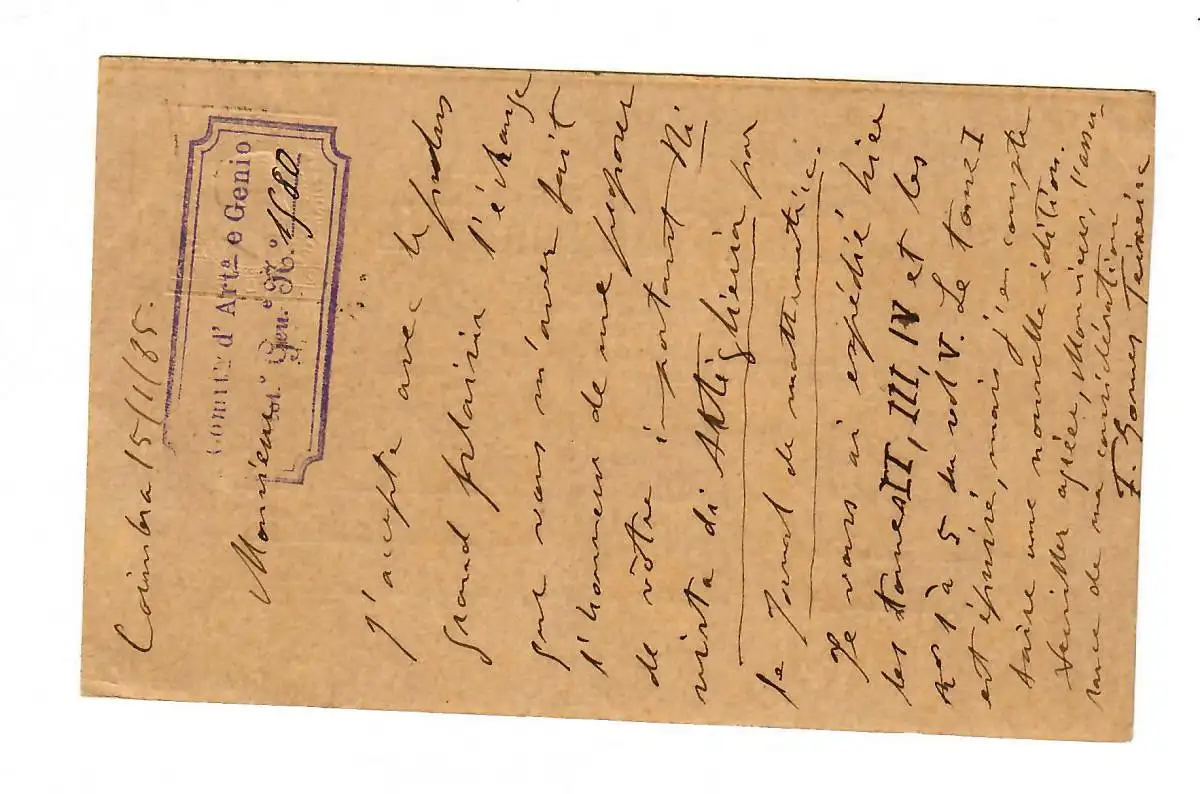 Coimbra 15/1/85.
Comit.º d'Art.ª e Genio
Gen.e N.º 1580
Monsieur
J'accepte avec le plus
grand plaisir l'échange
que vous m'avez fait
l'honneur de me proposer
de vôtre important Ri
vista di Artiglieria par
le Jornal de mathematic.
Je vous ai expédié hier
les tomes II, III, IV et les
nos 1 à 5 du vol V. Le tome I
est épuisé, mais j'en compte
faire une nouvelle édition.
Veuillez agréer, Monsieur, l'assu-
rance de ma considération
F. Gomes Teixeira